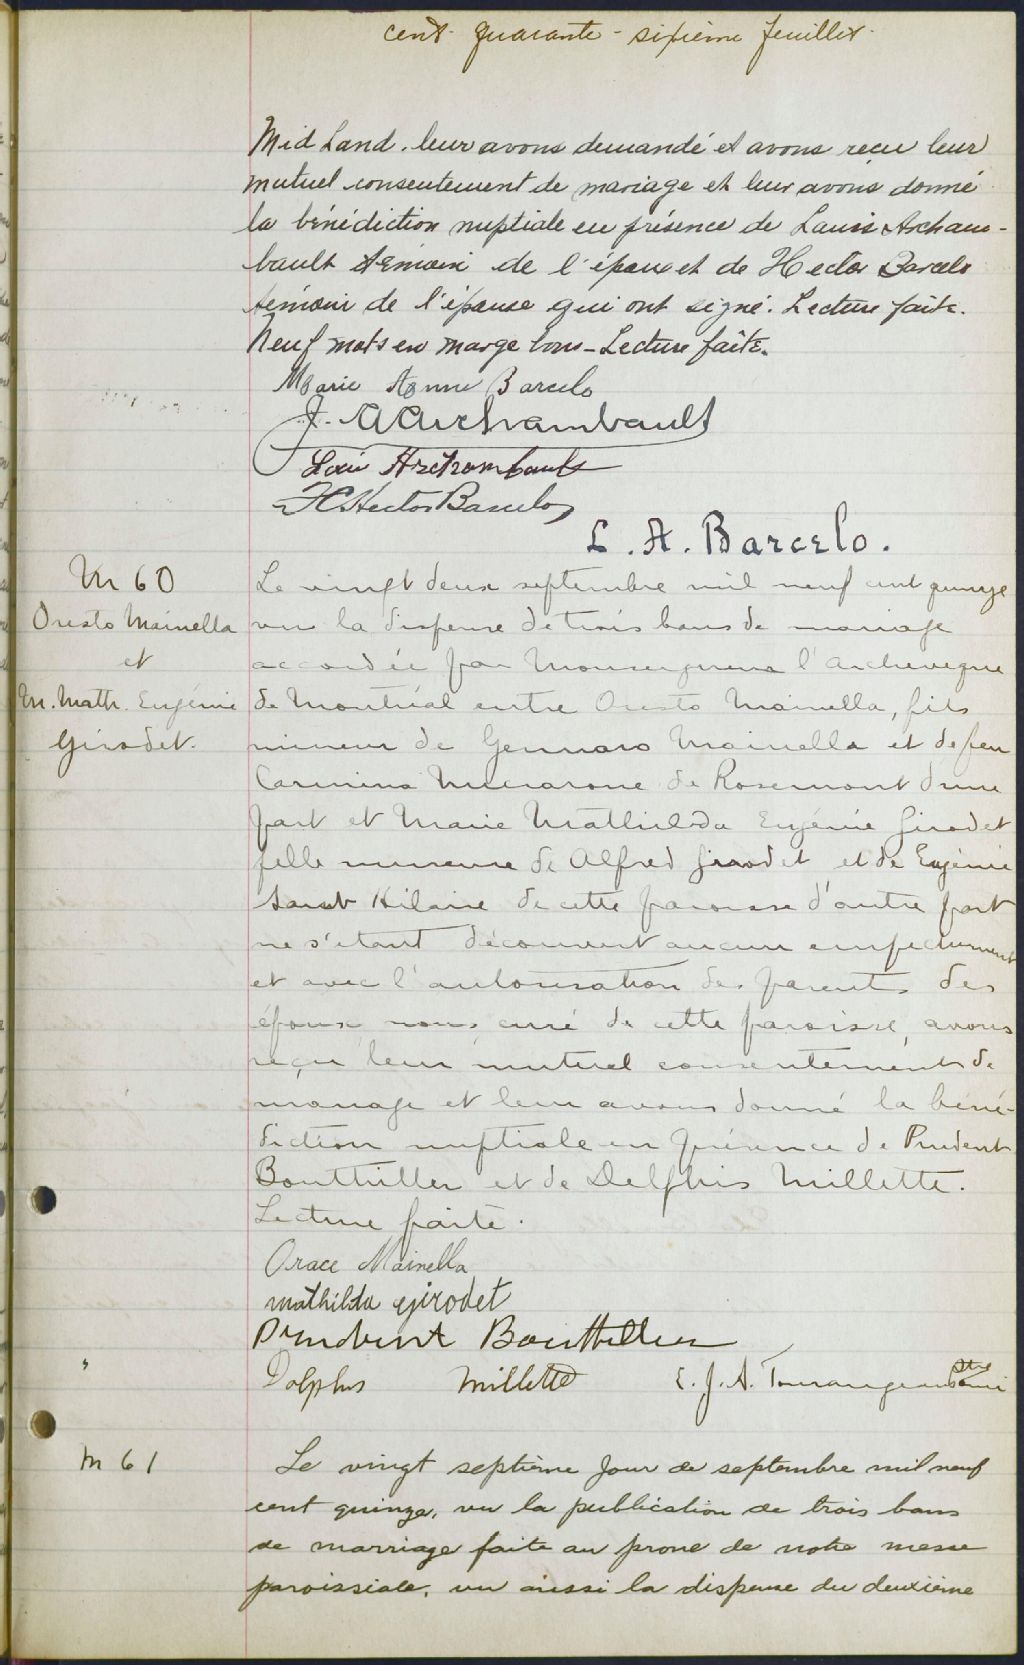 cent quarante-sixième feuillet.
Mid Land. leur avons demandé et avons reçu leur
mutuel consentement de mariage et leur avons donné
la bénédiction nuptiale en présence de Louis Archam-
bault témoin de l'époux et de Hector Barcelo
témoin de l'épouse qui ont signé. Lecture faite.
Neuf mots en marge bons - Lecture faite.
Marie Anne Barcelo
J. A Archambault
Louis Archambault
H. Hector Barcelo
L. A. Barcelo.
M 60
Oresto Mainella
et
M. Math. Eugénie
Girodet.
Le vingt deux septembre mil neuf cent quinze
vu la dispense de trois bans de mariage
accordée par Monseigneur l'archevêque
de Montréal entre Oresto Mainella, fils
mineur de Gennaro Mainella et de feu
Carmina de Rosemont d'une
part et Marie Mathilda Eugénie Girodet
fille mineure de Alfred Girodet et de Eugénie
Saint Hilaire de cette paroisse d'autre part
ne s'étant découvert aucun empêchement
et avec l'autorisation des parents des
époux nous curé de cette paroisse, avons
reçu leur mutuel consentement de
mariage et leur avons donné la béné-
diction nuptiale en présence de Prudent
Bouthiller et de Delphis Millette.
Lecture faite.
Orace Mainella
Mathilda Girodet
Prudent Bouthillier
Dolphus Millette E. J. A. Tourangeau ptre curé
M 61
Le vingt septième jour de septembre mil neuf
cent quinze, vu la publication de trois bans
de marriage faite au prone de notre messe
paroissiale, vu aussi la dispense du deuxième